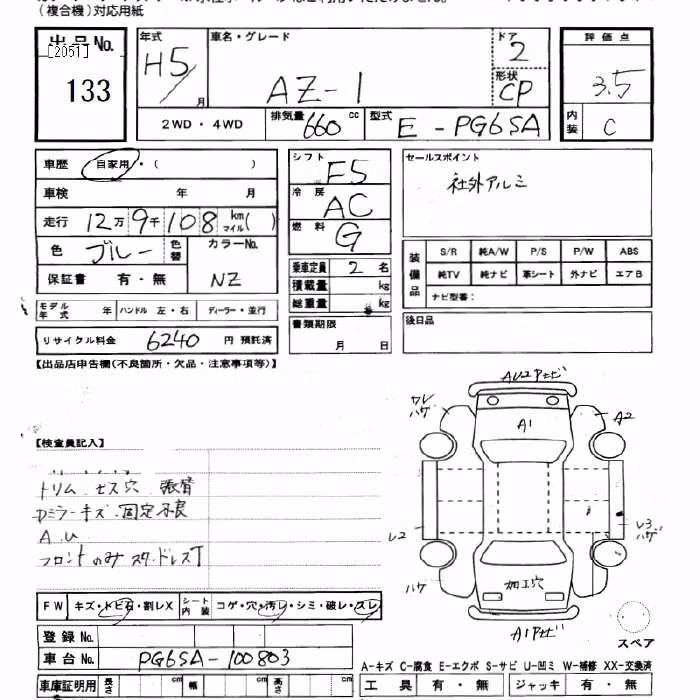 (複合機)対応用紙
出品No.
[2051]
133
年式
H5
月
車名・グレード
AZ-1
ドア
2
形状
CP
2WD・4WD
排気量
660
cc
型式
E-PG6SA
評価点
3.5
内装
C
車歴
自家用・( )
車検 年 月
走行 12万9千108 km マイル( )
色 ブルー 色替
カラーNo.
NZ
保証書 有・無
モデル年式 年 ハンドル 左・右 ディーラー・並行
リサイクル料金 6240 円 預託済
シフト
F5
冷房
AC
燃料
G
乗車定員 2 名
積載量 kg
総重量 kg
書類期限
月 日
セールスポイント
社外アルミ
装備品
S/R 純A/W P/S P/W ABS
純TV 純ナビ 革シート 外ナビ エアB
ナビ型番:
後日品
【出品店申告欄(不良箇所・欠品・注意事項等)】
【検査員記入】
トリム ビス穴 張替
Dミラーキズ 固定不良
A.U
フロントのみ スタッドレスT
AU2Pセビ
ワレ
ハゲ
A2
A1
レ2
レ3
ハゲ
ハゲ
加工穴
A1Pセビ
スペア
FW キズ・トビ石・割レX
シート内装 コゲ・穴・汚レ・シミ・破レ・スレ
登録No.
車台No. PG6SA-100803
車庫証明用 長さ cm 幅 cm 高さ cm
A-キズ C-腐食 E-エクボ S-サビ U-凹ミ W-補修 XX-交換済
工具 有・無 ジャッキ 有・無